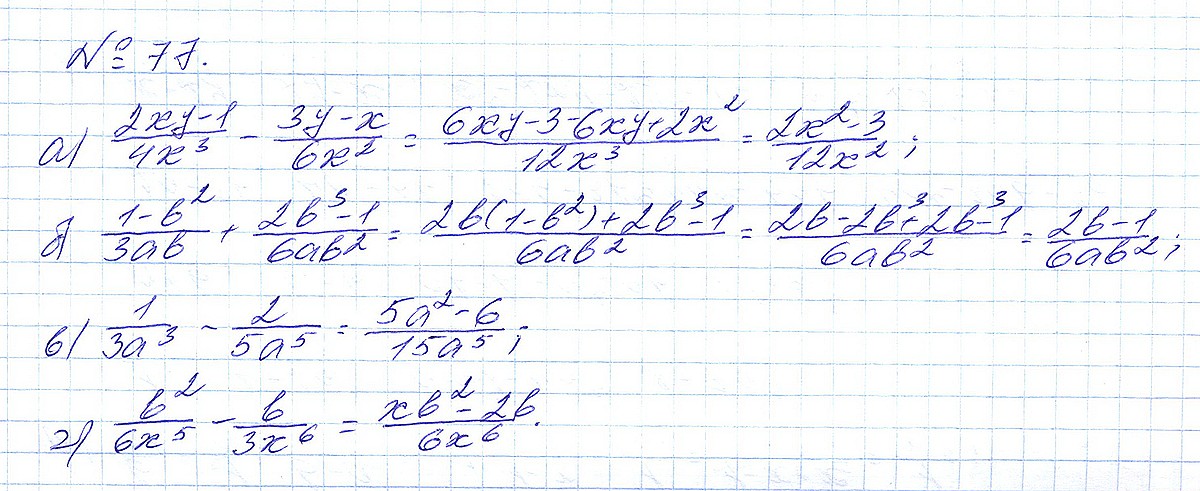 № 77.
а) (2xy-1)/(4x³) - (3y-x)/(6x²) = (6xy-3-6xy+2x²)/(12x³) = (2x²-3)/(12x²);
б) (1-b²)/(3ab) + (2b³-1)/(6ab²) = (2b(1-b²)+2b³-1)/(6ab²) = (2b-2b³+2b³-1)/(6ab²) = (2b-1)/(6ab²);
в) 1/(3a³) - 2/(5a⁵) = (5a²-6)/(15a⁵);
г) b²/(6x⁵) - b/(3x⁶) = (xb²-2b)/(6x⁶).